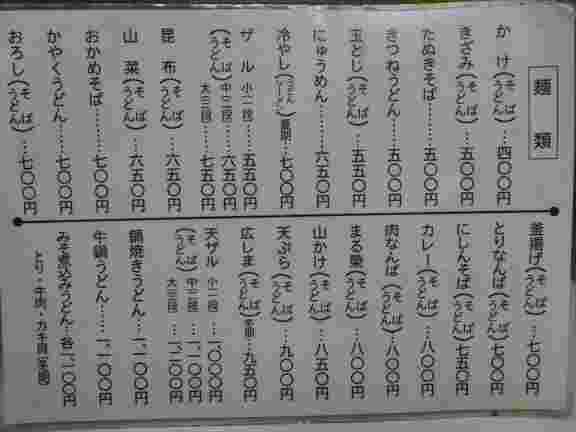 麺類
かけ(そば・うどん)…四〇〇円
きざみ(そば・うどん)…五〇〇円
たぬきそば………五〇〇円
きつねうどん……五〇〇円
玉とじ(そば・うどん)…五五〇円
にゅうめん………六五〇円
冷やし(うどん・ラーメン)夏期…七〇〇円
ザル(そば・うどん)小二段…五五〇円
中二段…六五〇円
大三段…七五〇円
昆布(そば・うどん)…六五〇円
山菜(そば・うどん)…六五〇円
おかめそば………七〇〇円
かやくうどん……七〇〇円
おろし(そば・うどん)…七〇〇円
釜揚げ(そば・うどん)…七〇〇円
とりなんば(そば・うどん)七〇〇円
にしんそば(そば・うどん)七五〇円
カレー(そば・うどん)…八〇〇円
肉なんば(そば・うどん)…八〇〇円
まる栄(そば・うどん)…八〇〇円
山かけ(そば・うどん)…八五〇円
天ぷら(そば・うどん)…九〇〇円
広しま(そば・うどん)冬期…九五〇円
天ザル(そば・うどん)小二段…一、〇〇〇円
中二段…一、一〇〇円
大三段…一、二〇〇円
鍋焼きうどん…一、一〇〇円
牛鍋うどん……一、一〇〇円
みそ煮込みうどん…各一、一〇〇円
とり・牛肉・カキ貝(冬期)